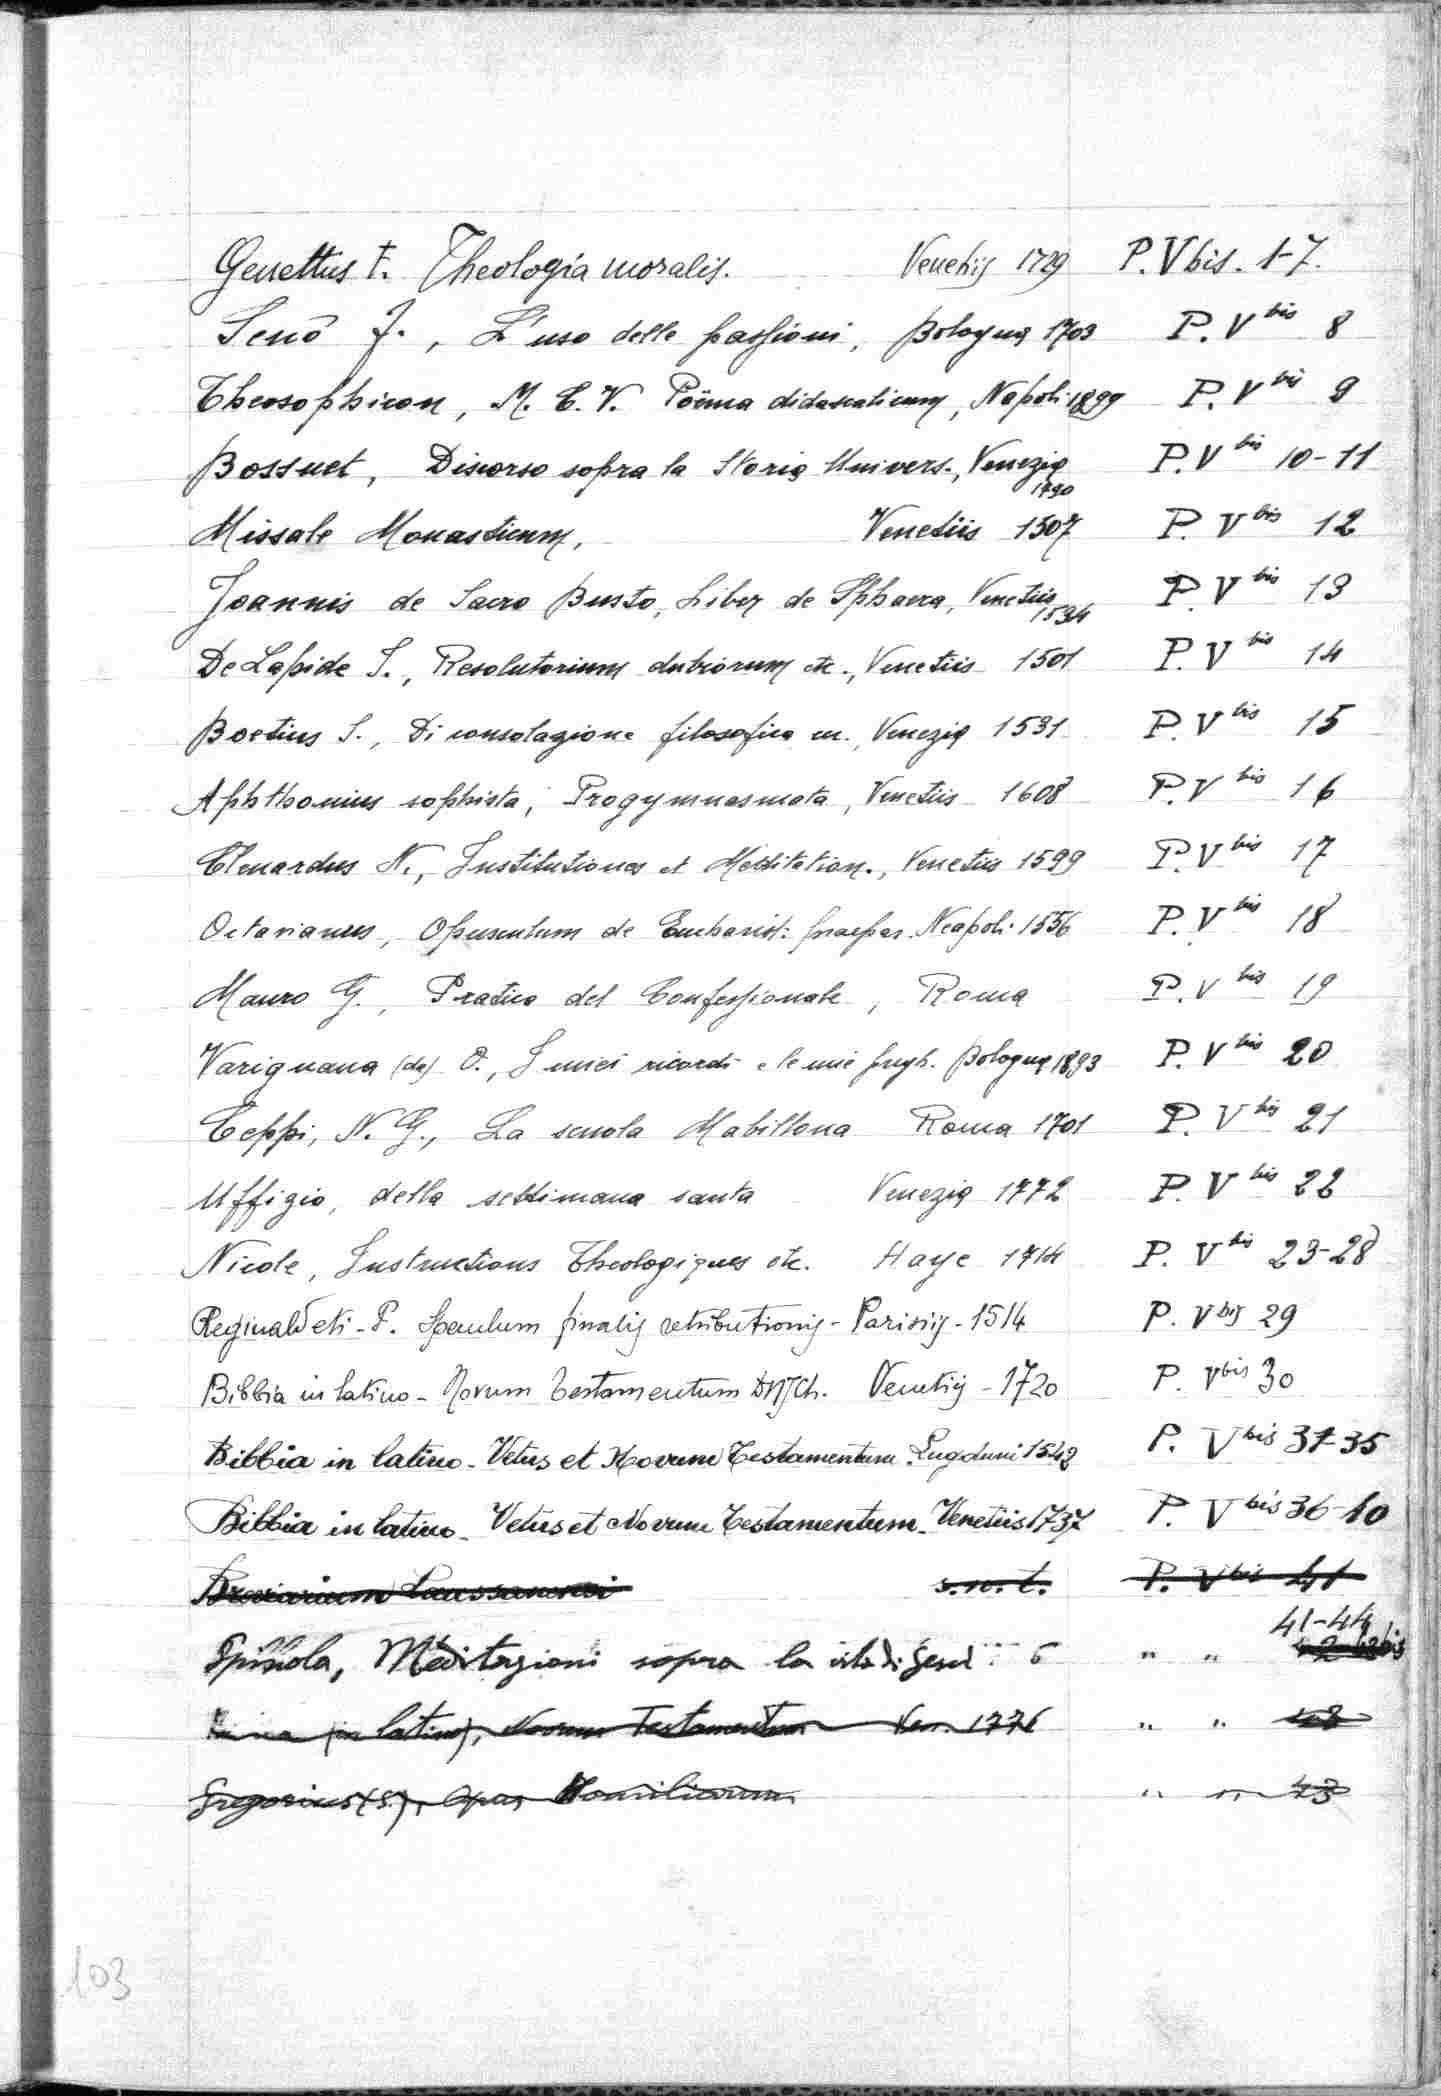 Genettus F. Theologia moralis. Venetijs 1729 P. V bis. 1-7.
Senò J., L'uso delle passioni, Bologna 1703 P. V bis 8
Theosophicon, M. C. V. Poëma didascalicum, Napoli 1899 P. V bis 9
Bossuet, Discorso sopra la Storia Univers., Venezia 1790 P. V bis 10-11
Missale Monasticum, Venetiis 1507 P. V bis 12
Joannis de Sacro Busto, Liber de Sphaera, Venetiis 1534 P. V bis 13
De Lapide J., Resolutorium dubiorum etc., Venetiis 1501 P. V bis 14
Boetius S., Di consolazione filosofica, Venezia 1531 P. V bis 15
Aphthonius sophista, Progymnasmata, Venetiis 1608 P. V bis 16
Clenardus N., Institutiones et Meditation., Venetiis 1599 P. V bis 17
Octavianus, Opusculum de Eucharist: praepar. Neapoli 1556 P. V bis 18
Mauro G., Pratica del Confessionale, Roma P. V bis 19
Varignana (da) O., I miei ricordi e le mie pregh. Bologna 1893 P. V bis 20
Ceppi, N. G., La scuola Mabillona Roma 1701 P. V bis 21
Uffizio, della settimana santa Venezia 1772 P. V bis 22
Nicole, Instructions Theologiques etc. Haye 1714 P. V bis 23-28
Reginaldeti - P. Speculum finalis retributionis - Parisiis - 1514 P. V bis 29
Bibbia in latino - Novum Testamentum DNJCh. Venetijs - 1720 P. V bis 30
Bibbia in latino - Vetus et Novum Testamentum Lugduni 1542 P. V bis 31-35
Bibbia in latino - Vetus et Novum Testamentum - Venetiis 1737 P. V bis 36-40
Breviarium s.n.t. P. V bis 41
41-44
Spinola, Meditazioni sopra la vita di Gesù " "
(in latino), Novum Testamentum Ven. 1776 " "
Gregorius (S.), Opus Homiliarum " " 43
103